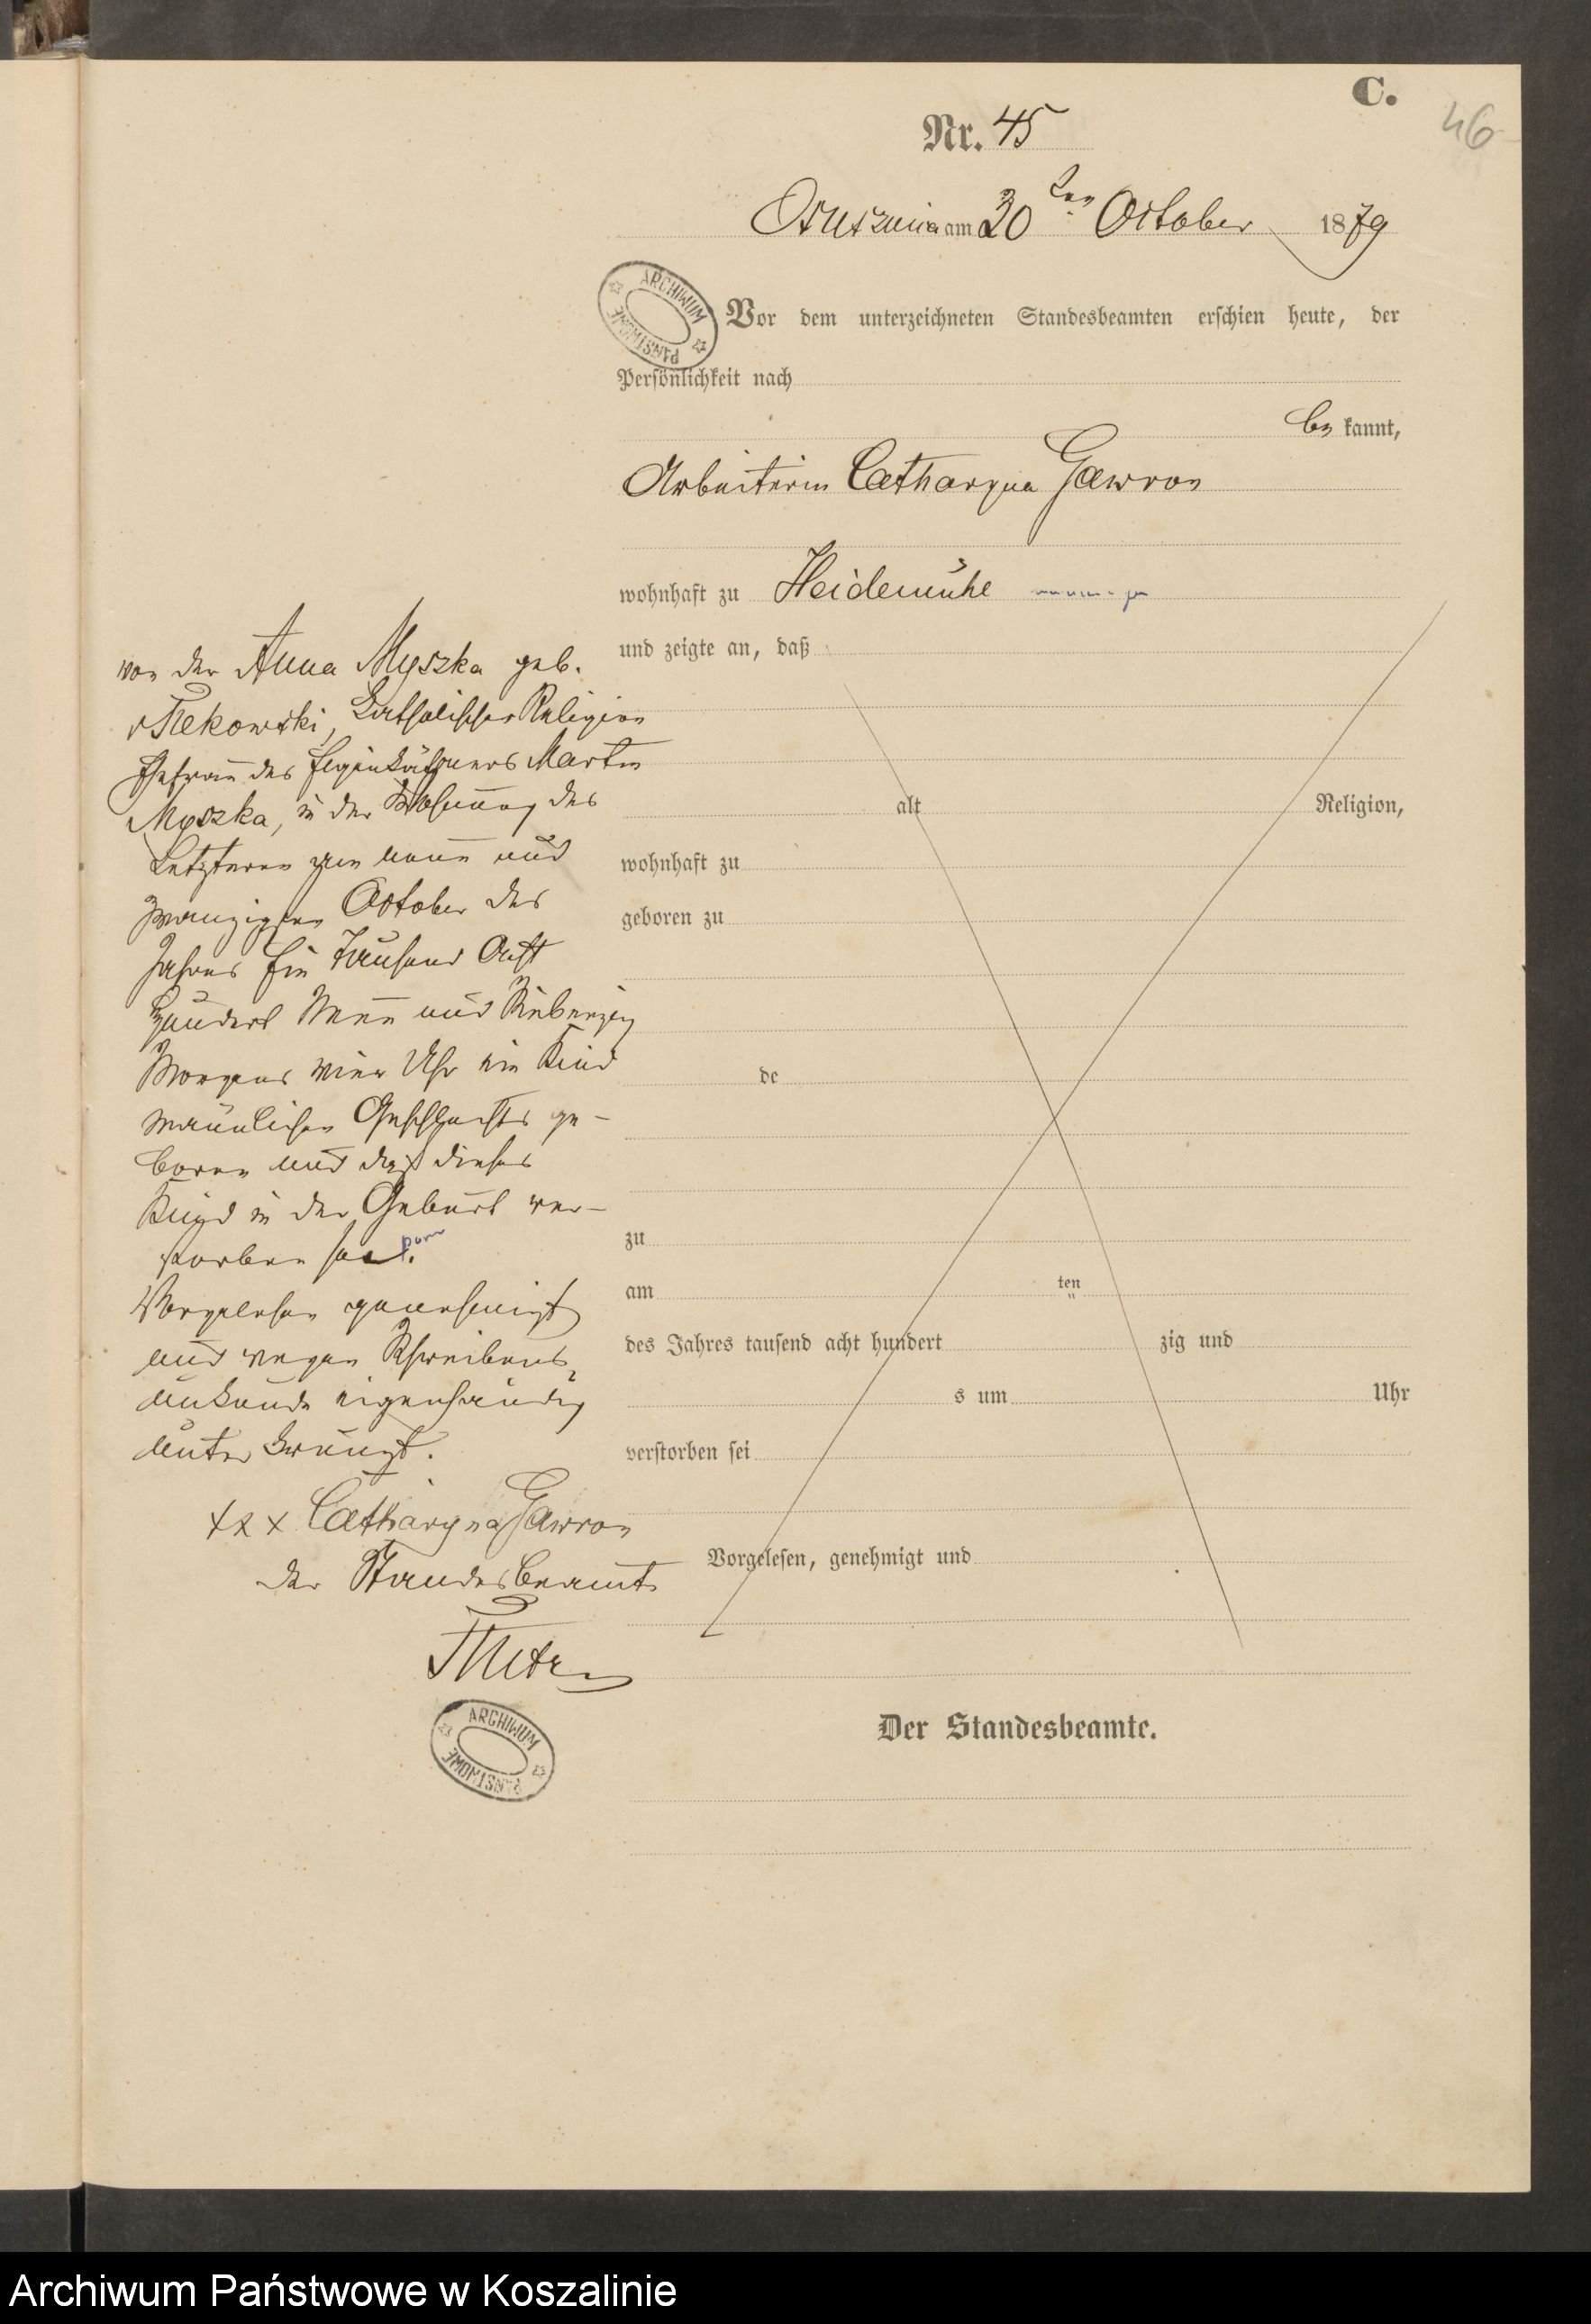 C.
46
Nr. 45
Ossuszniza am 30 ten October 1879
ARCHIWUM PAŃSTWOWE
Vor dem unterzeichneten Standesbeamten erschien heute, der
Persönlichkeit nach
be kannt,
Arbeiterin Catharyna Gawron
wohnhaft zu Heidemühe
und zeigte an, daß
von der Anna Myszka geb.
v Rekowski, katholischer Religion
Ehefrau des Eigenkäthners Martin
Myszka, in der Wohnung des
Letzteren am neun und
zwanzigsten October des
Jahres Ein Tausend Acht
Hundert Neun und Siebenzig
Morgens vier Uhr ein Kind
männlichen Geschlechts ge-
boren und daß dieses
Kind in der Geburt ver-
storben sei.
Vorgelesen genehmigt
und wegen Schreibens
unkunde eigenhändig
unter kreuzt.
xxx Catharyna Gawron
der Standesbeamte
alt Religion,
wohnhaft zu
geboren zu
de
zu
am ten
des Jahres tausend acht hundert zig und
s um Uhr
verstorben sei
Vorgelesen, genehmigt und
ARCHIWUM PAŃSTWOWE
Der Standesbeamte.
Archiwum Państwowe w Koszalinie